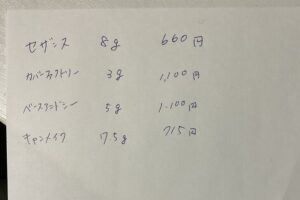 セザンヌ 8g 660円
カバーファクトリー 3g 1,100円
ベースアンドシー 5g 1.100円
キャンメイク 17.5g 715円